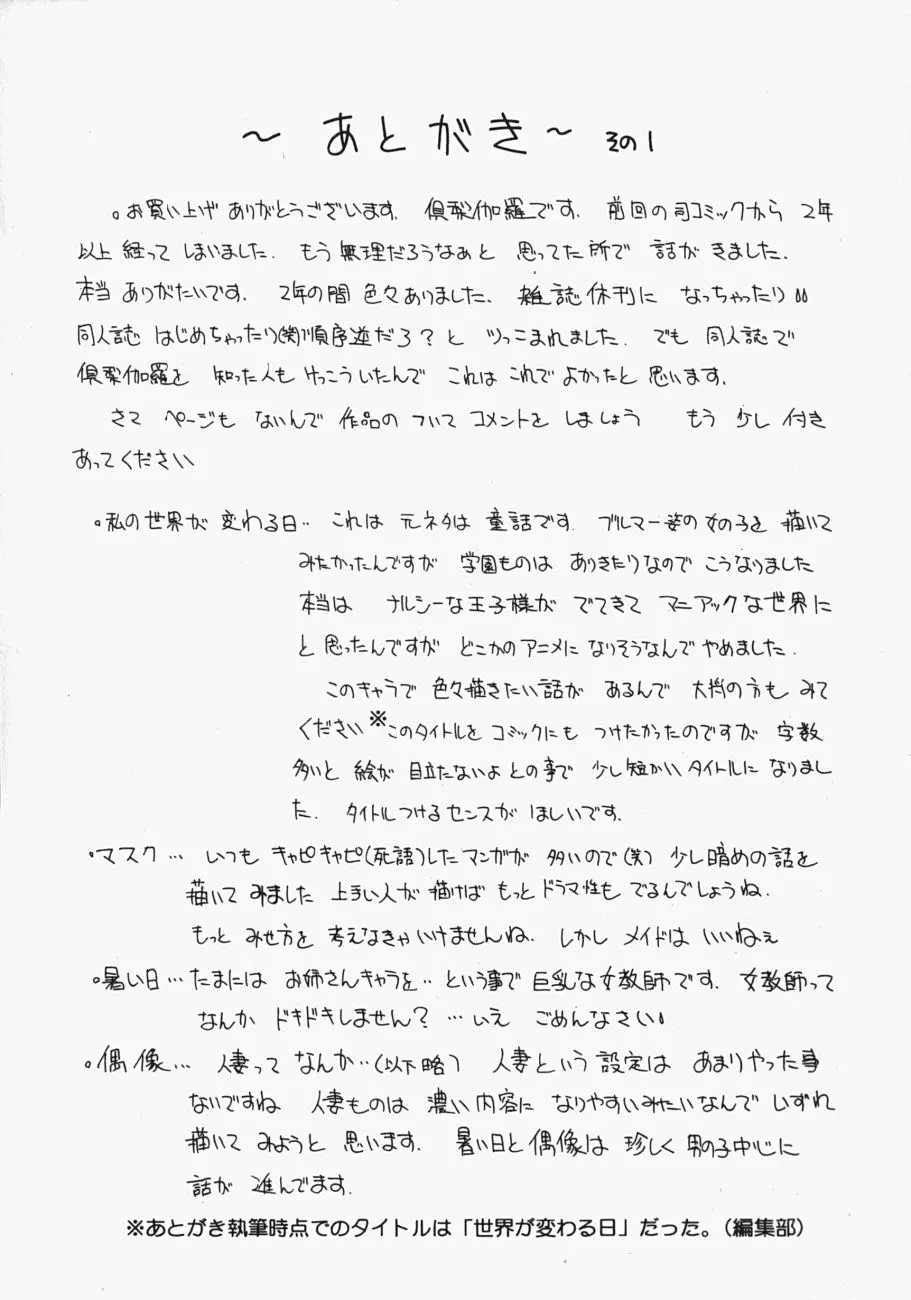 ～ あとがき～ その1
。お買い上げ ありがとうございます。倶梨伽羅です。前回の司コミックから 2年
以上 経って しまいました。もう無理だろうなぁと 思ってた所で 話が きました。
本当 ありがたいです。2年の間 色々ありました、雑誌休刊に なっちゃったり
同人誌 はじめちゃったり(笑)順序逆だろ？と ツっこまれました。でも 同人誌で
倶梨伽羅を 知った人も けっこういたんで これは これで よかったと 思います。
さて ページも ないんで 作品の ついて コメントを しましょう もう 少し 付き
あってください
。私の世界が 変わる日‥ これは 元ネタは 童話です。ブルマー姿の女の子を 描いて
みたかったんですが 学園ものは ありきたりなので こうなりました
本当は ナルシーな王子様が でてきて マニアックな世界に
と 思ったんですが どこかのアニメに なりそうなんで やめました。
このキャラで 色々描きたい話が あるんで 大将の方も みて
ください※このタイトルを コミックにも つけたかったのですが 字数
多いと 絵が 目立たないよ との事で 少し短かいタイトルに なりまし
た。タイトルつけるセンスが ほしいです。
・マスク… いつも キャピキャピ(死語)したマンガが 多いので(笑) 少し暗めの話を
描いて みました 上手い人が 描けば もっと ドラマ性も でるんでしょうね。
もっと みせ方を 考えなきゃ いけませんね。しかし メイドは いいねぇ
。暑い日… たまには お姉さんキャラを‥ という事で 巨乳な女教師です。女教師って
なんか ドキドキしません？ …いえ ごめんなさい
。偶像… 人妻って なんか‥(以下略) 人妻という 設定は あまりやった事
ないですね 人妻ものは 濃い内容に なりやすいみたいなんで いずれ
描いて みようと 思います。暑い日と 偶像は 珍しく 男の子中心に
話が 進んでます。
※あとがき執筆時点でのタイトルは「世界が変わる日」だった。（編集部）